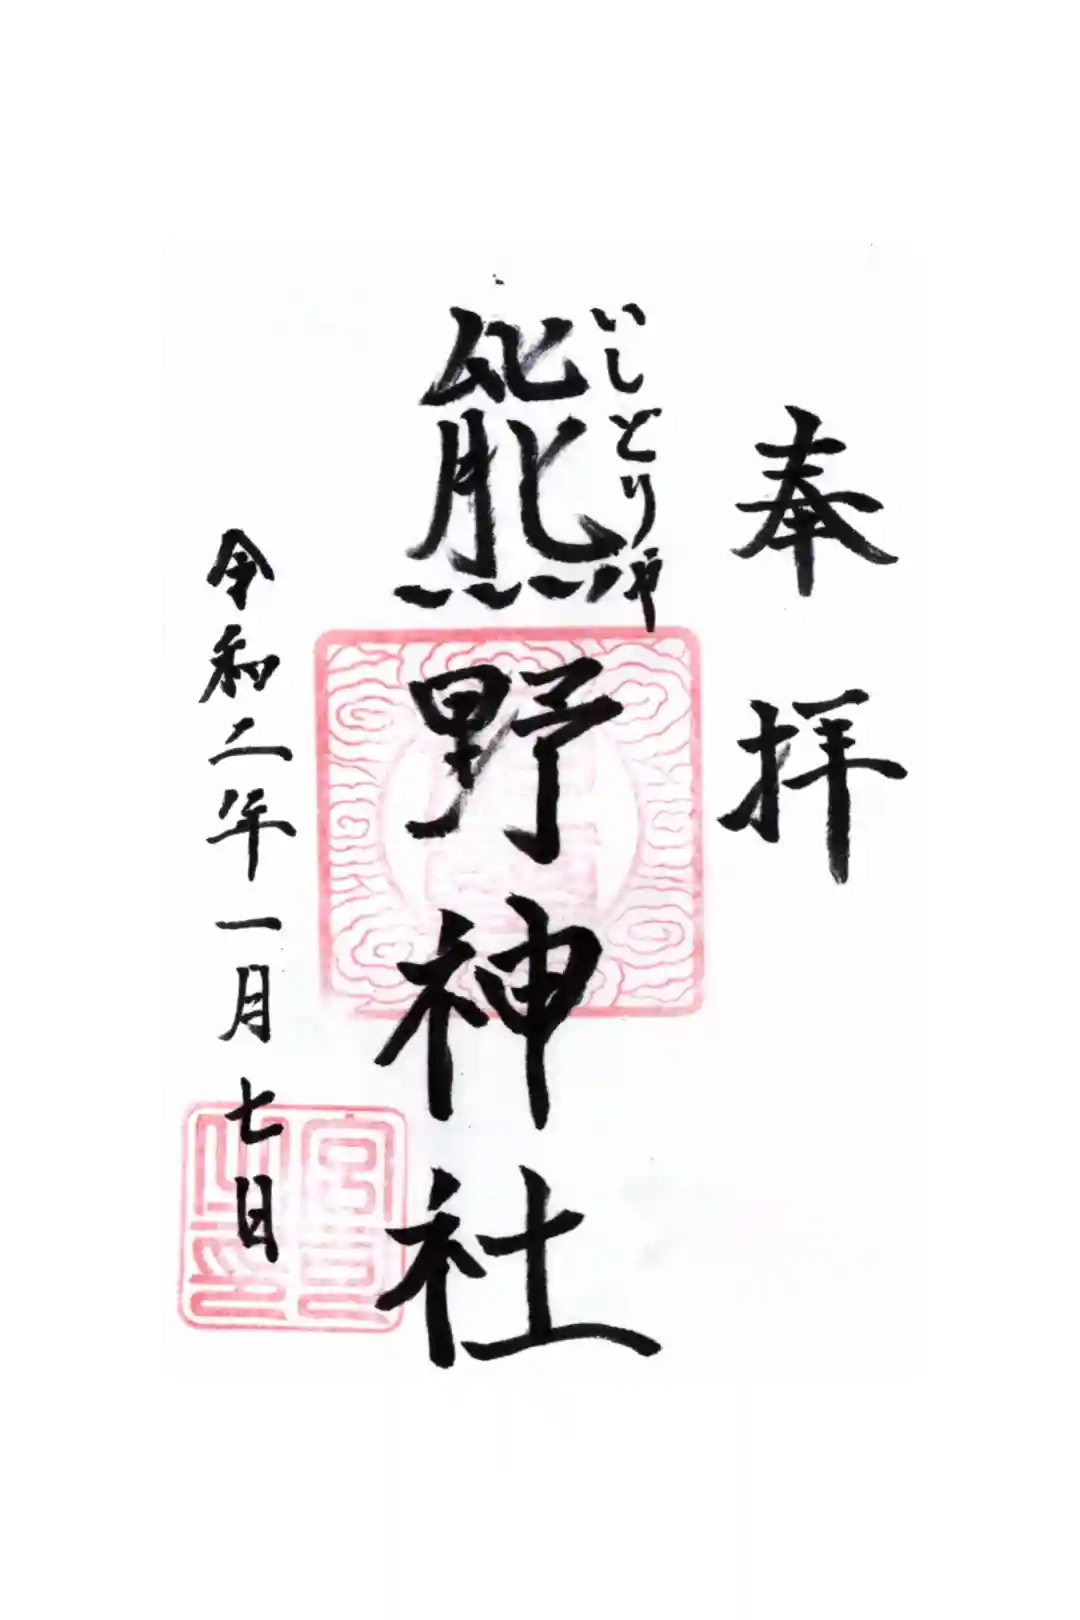 奉拝
いしどり神
熊野神社
令和二年一月七日
宮司之印